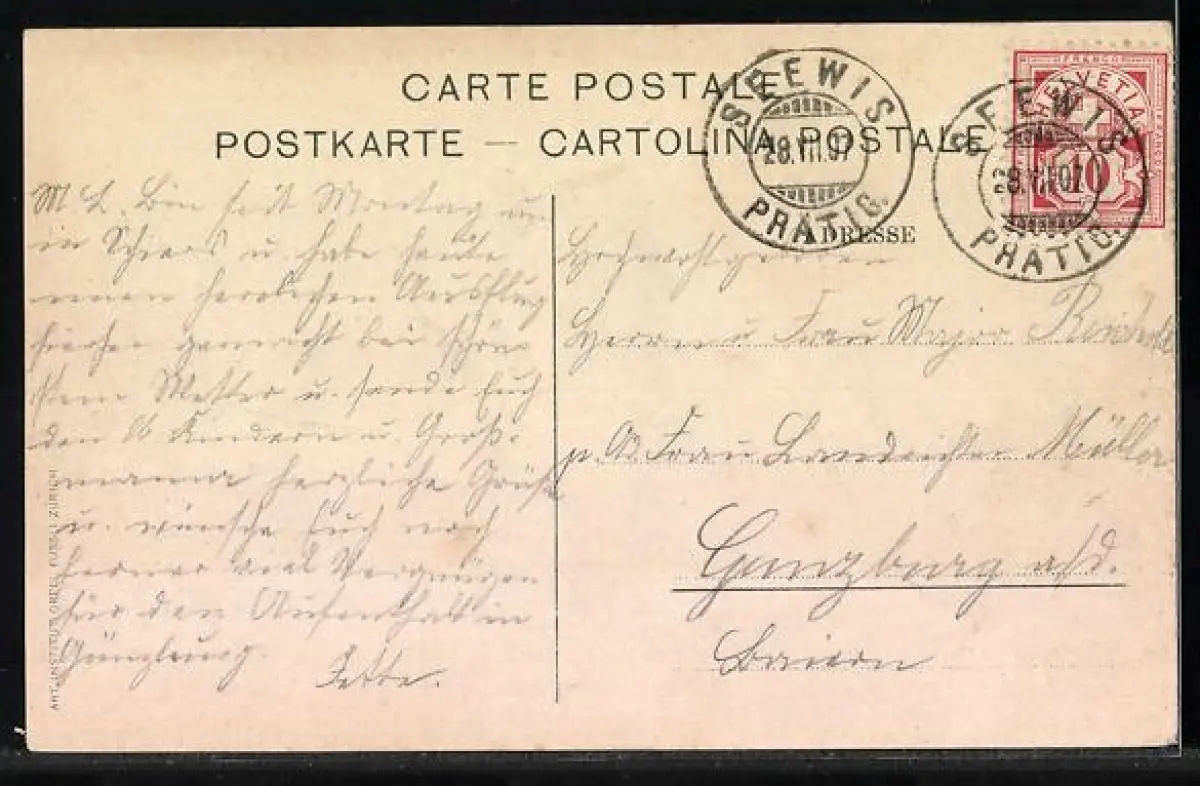 CARTE POSTALE
POSTKARTE — CARTOLINA POSTALE
SEEWIS
28.VII.07
PRÄTIG.
SEEWIS
28.VII.07
PRÄTIG.
FRANCO
HELVETIA
10
ADRESSE
M. L. Bin seit Montag nun
in Schiers u. habe heute
einen herrlichen Ausflug
hierher gemacht bei schön-
stem Wetter u. sende Euch
den lb Kindern u. Groß-
mama herzliche Grüße
u. wünsche Euch noch
ferner viel Vergnügen
für den Aufenthalt in
Günzburg.
Jette.
Hochwohlgeboren
Herrn u Frau Major
p. Ad. Frau Landrichter Müller
Günzburg a/d.
Baiern
ART. INSTITUT ORELL FÜSSLI ZÜRICH